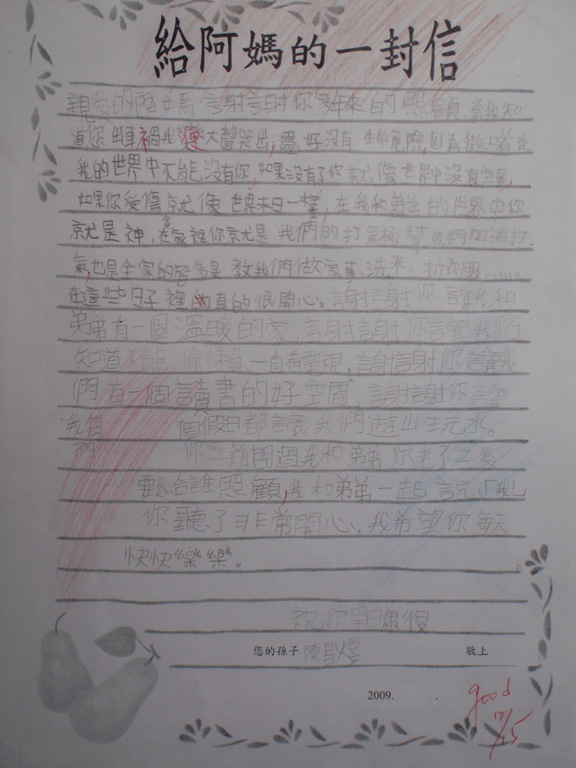 給阿媽的一封信
親愛的阿媽謝謝你多年來的照顧,當我知
道你出車禍我,大聲哭出,還好沒有生命危險,因為
我的世界中不能沒有你,如果沒有了你就像世界中沒有空氣,
如果你受傷就像世界末日一樣,在我和弟弟的世界中你
就是神,在家裡你就是我們的打氣桶幫我們加油打
氣,也是全家的 教我們做家事、洗米、折衣服……
在這些日子裡 真的很開心。謝謝你讓我和
弟弟有一個溫暖的家,謝謝你讓我們
知道不能偷懶一直看電視,謝謝你讓我
們有一個讀書的好空間,謝謝你讓
我們每個假日都讓我們遊山玩水。
你之前問過我和弟弟你老了之後
要給誰照顧,我和弟弟一起說「我!」
你聽了非常開心,我希望你每天
快快樂樂。
祝你早日康復
您的孫子 陳 煜 敬上
2009.
good
12/15